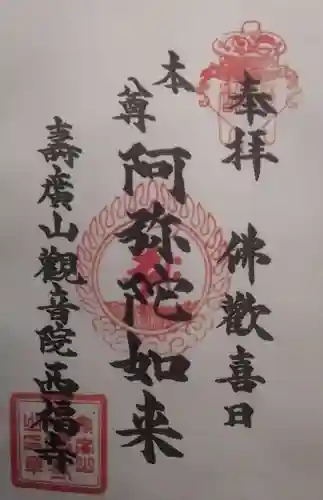 奉拝
佛歡喜日
本尊
阿弥陀如来
壽廣山觀音院西福寺